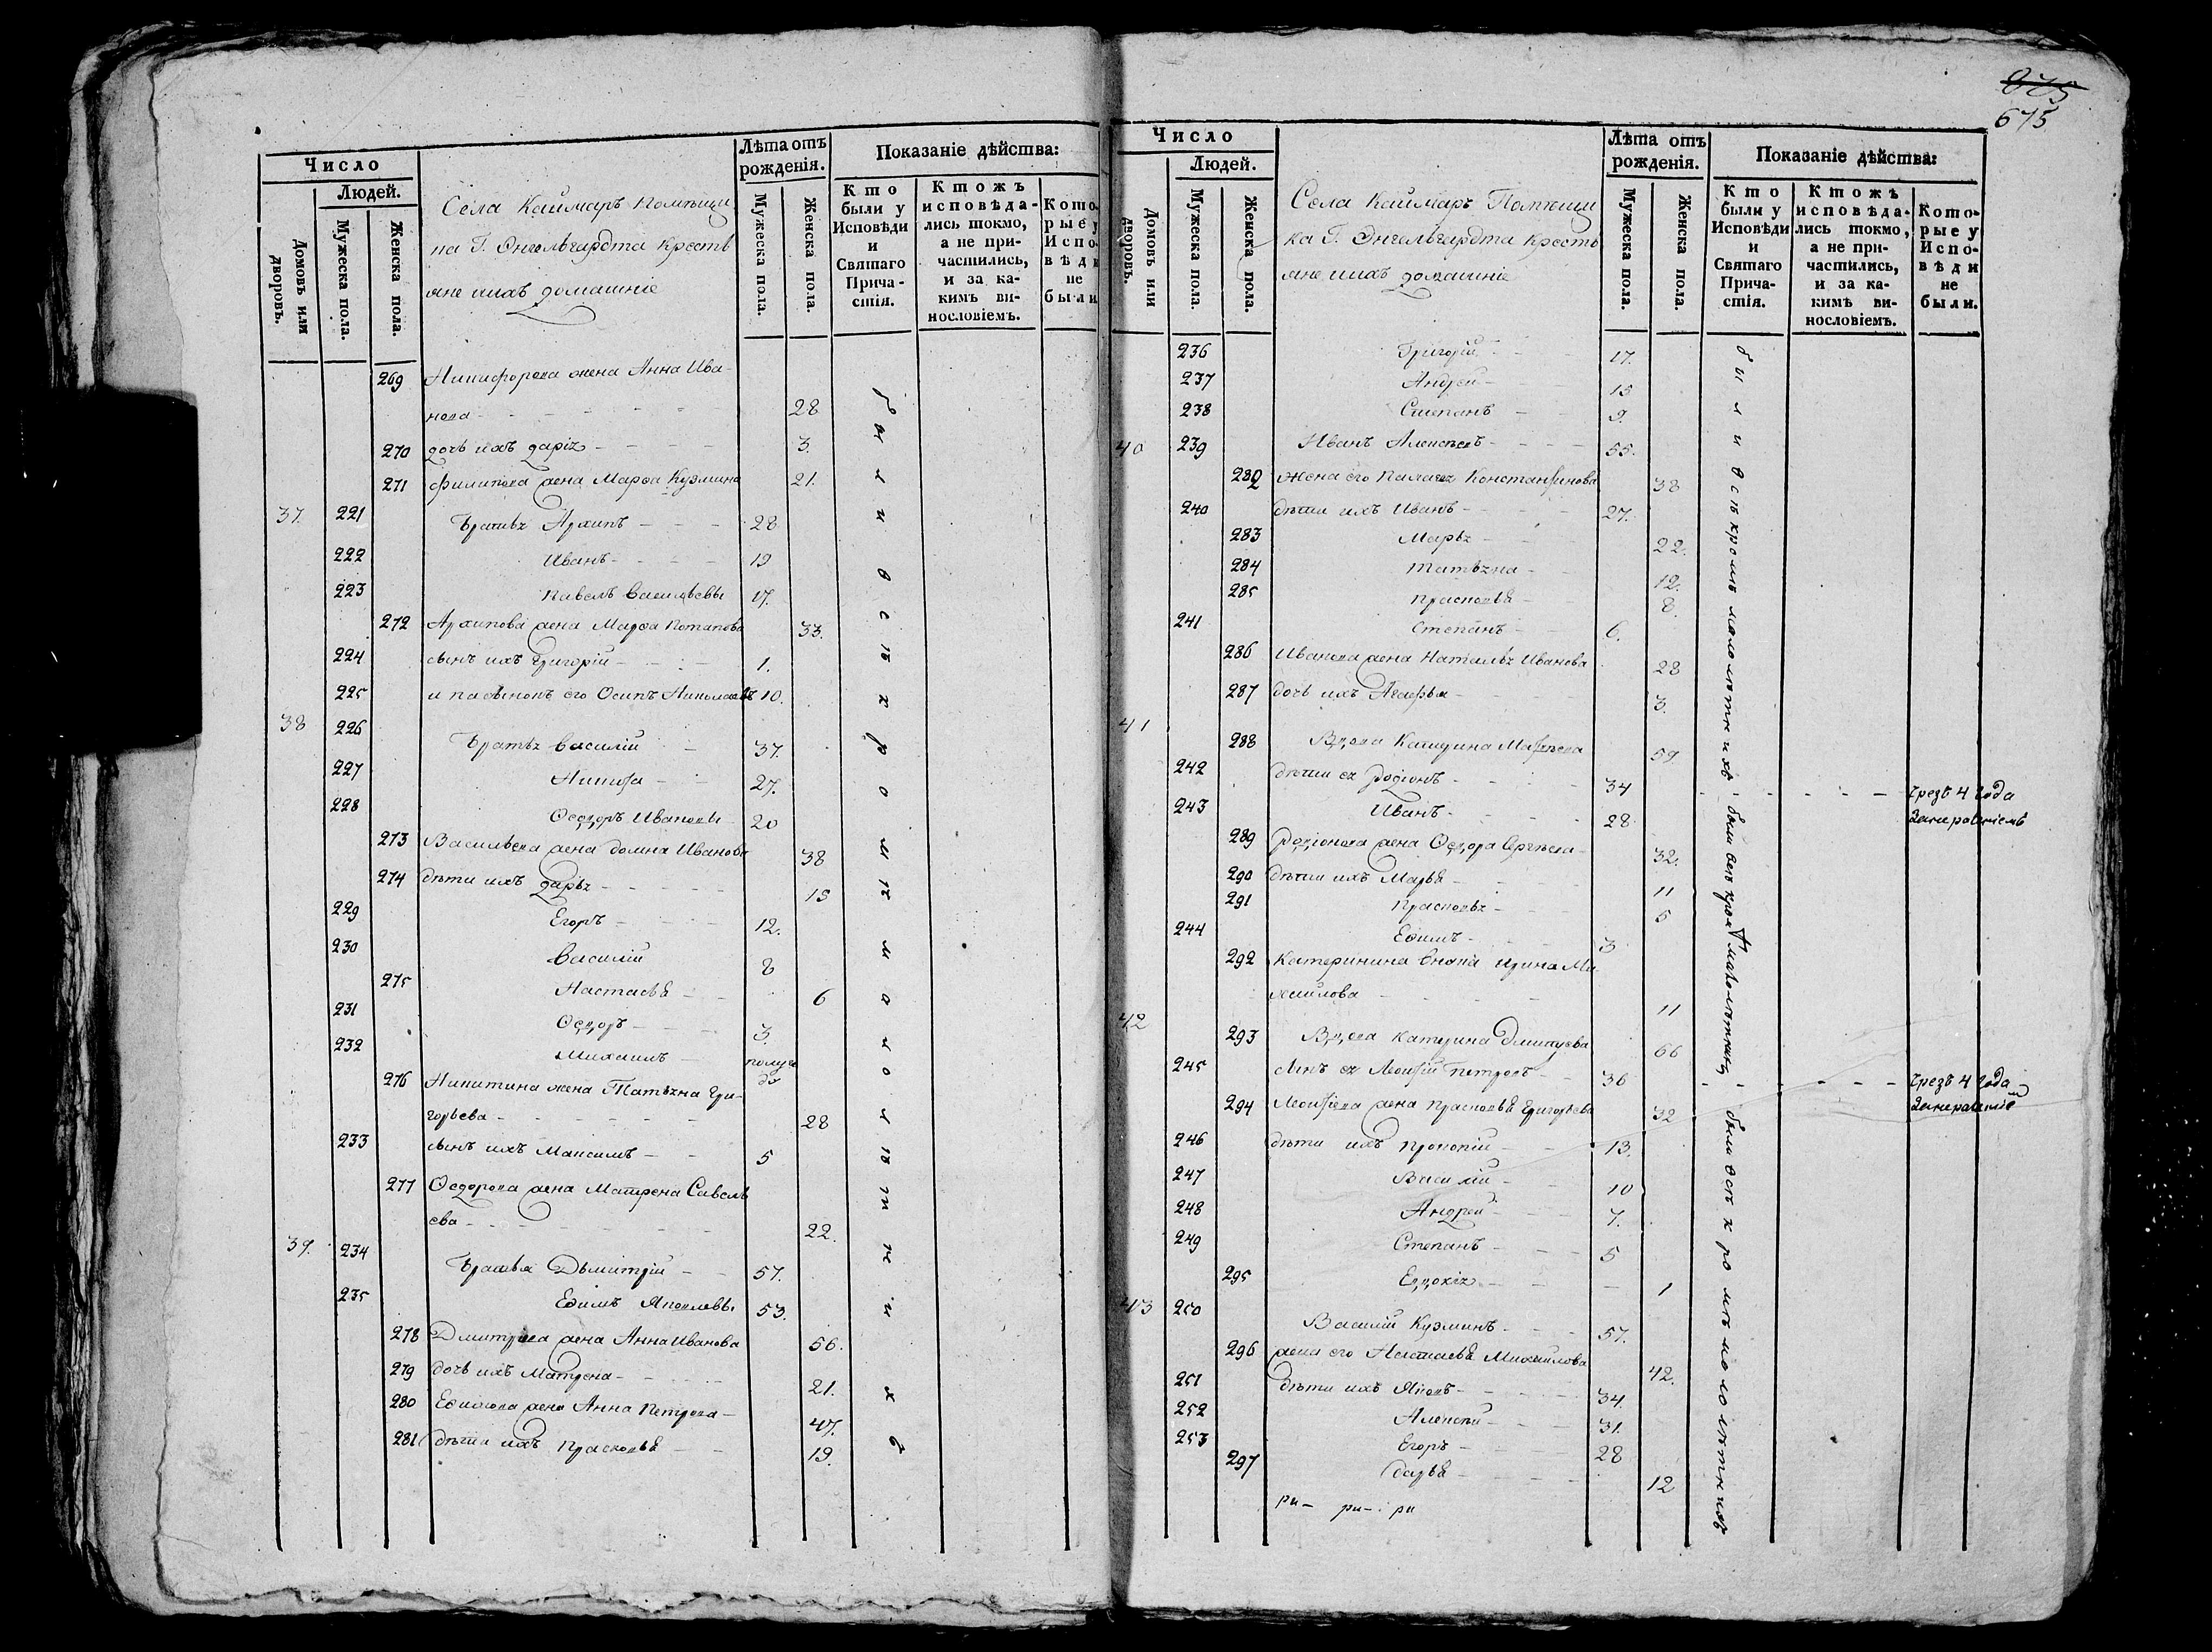 675
Число
Людей.
Домовъ или дворовъ.
Мужеска пола.
Женска пола.
Села Каймаръ Помѣщи
ка Г. Энгельгардта Кресть
яне и ихъ домашніе
Лѣта отъ рожденія.
Мужеска пола.
Женска пола.
Показаніе дѣйства:
Кто были у Исповѣди и Святаго Прича-стія.
Ктожъ исповѣда-лись токмо, а не при-частились, и за ка-кимъ ви-нословіемъ.
Кото-рые у Испо-вѣди не были.
269 Никифорова жена Анна Ива-
нова 28
270 дочь ихъ Дарія 3.
271 Филипова жена Марѳа Кузмина 21.
37. 221 Братья Архипъ 28
222 Иванъ 19
223 Павелъ Васильевы 17.
272 Архипова жена Марѳа Потапова 33.
224 сынъ ихъ Григорій 1.
225 и пасынокъ его Осипъ Николаевъ 10.
38 226 Братья Василій 37.
227 Никита 27.
228 Ѳедоръ Ивановы 20
273 Васильева жена Домна Иванова 38
274 дѣти ихъ Дарья 15
229 Егоръ 12.
230 Василій 8
275 Настасья 6
231 Ѳедоръ 3.
232 Михаилъ полуго
да
276 Никитина жена Татьяна Гри-
горьева 28
233 сынъ ихъ Максимъ 5
277 Ѳедорова жена Матрена Савель
ева 22.
39. 234 Братья Дьмитрій 57.
235 Ефимъ Яковлевы 53.
278 Дмитріева жена Анна Иванова 56.
279 дочь ихъ Матрена 21.
280 Ефимова жена Анна Петрова 47.
281 дѣти ихъ Прасковья 19.
были всѣ кромѣ малолѣтнихъ
Число
Людей.
Домовъ или дворовъ.
Мужеска пола.
Женска пола.
Села Каймаръ Помѣщи
ка Г. Энгельгардта Кресть
яне и ихъ домашніе
Лѣта отъ рожденія.
Мужеска пола.
Женска пола.
Показаніе дѣйства:
Кто были у Исповѣди и Святаго Прича-стія.
Ктожъ исповѣда-лись токмо, а не при-частились, и за ка-кимъ ви-нословіемъ.
Кото-рые у Испо-вѣди не были.
236 Григорій 17.
237 Андрей 15
238 Степанъ 9.
40 239 Иванъ Алексѣевъ 55.
282 жена его Палагея Константинова 38
240 дѣти ихъ Иванъ 27.
283 Марья 22.
284 Татьяна 12.
285 Прасковья 8.
241 Степанъ 6.
286 Иванова жена Наталья Иванова 28
287 дочь ихъ Агафья 3.
41
288 Вдова Катерина Матвѣева 59.
242 дѣти ея Родіонъ 34 чрезъ 4 года
243 Иванъ 28 за нерадѣніемъ
289 Родіонова жена Ѳедора Сергѣева 32.
290 дѣти ихъ Марья 11
291 Прасковья 5
244 Ефимъ 3
292 Катеринина сноха Ирина Ми
хайлова 11
42
293 Вдова Катерина Дмитрева 66
245 сынъ ея Леонтій Петровъ 36 чрезъ 4 года
за нерадѣніемъ
294 Леонтіева жена Прасковья Григорьева 32
246 дѣти ихъ Прокопій 13.
247 Василій 10
248 Андрей 7.
249 Степанъ 5
295 Евдокія 1
43 250 Василій Кузминъ 57.
296 жена его Настасья Михайлова 42.
251 дѣти ихъ Яковъ 34.
252 Алексѣй 31.
253 Егоръ 28
297 Дарья 12
ри- ри- ри
были всѣ кромѣ малолѣтнихъ
были всѣ кромѣ малолѣтнихъ
были всѣ кромѣ малолѣтнихъ